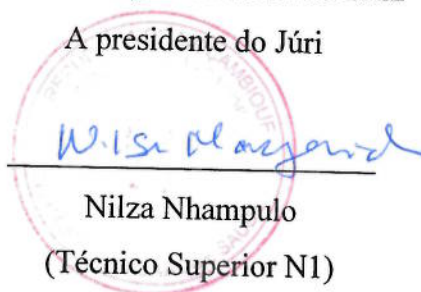 A presidente do Júri
Nilza Nhampulo
(Técnico Superior N1)